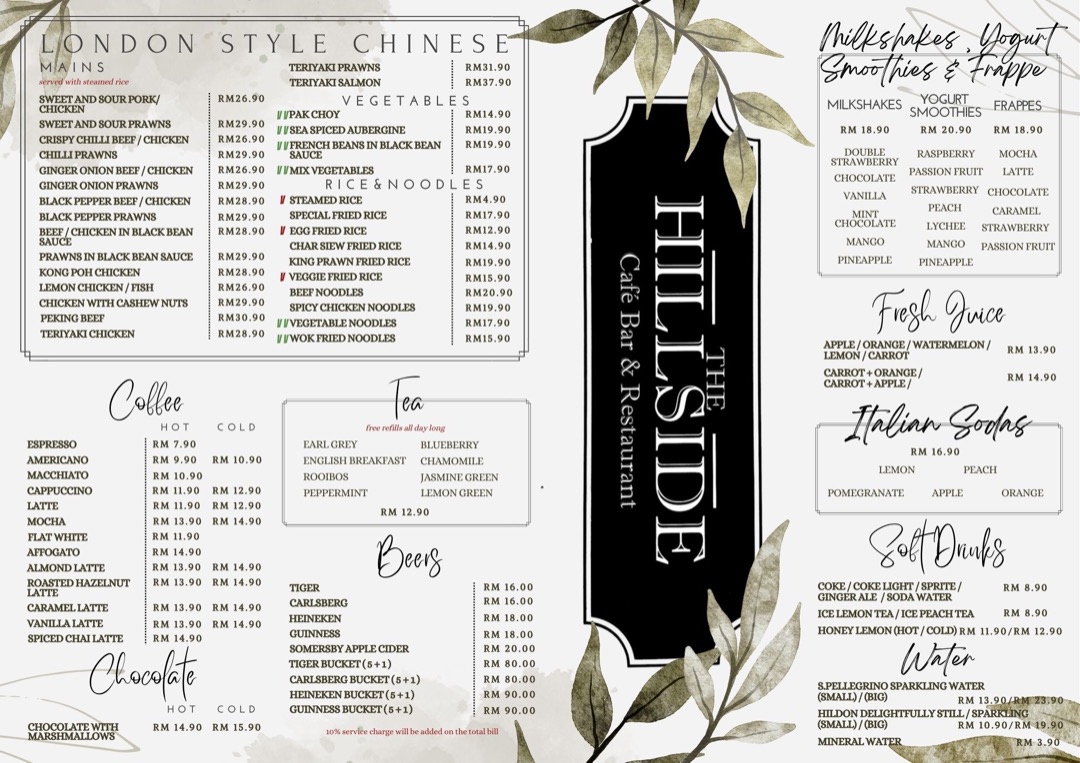 LONDON STYLE CHINESE
MAINS
served with steamed rice
SWEET AND SOUR PORK/ RM26.90
CHICKEN
SWEET AND SOUR PRAWNS RM29.90
CRISPY CHILLI BEEF / CHICKEN RM26.90
CHILLI PRAWNS RM29.90
GINGER ONION BEEF / CHICKEN RM26.90
GINGER ONION PRAWNS RM29.90
BLACK PEPPER BEEF / CHICKEN RM28.90
BLACK PEPPER PRAWNS RM29.90
BEEF / CHICKEN IN BLACK BEAN RM28.90
SAUCE
PRAWNS IN BLACK BEAN SAUCE RM29.90
KONG POH CHICKEN RM28.90
LEMON CHICKEN / FISH RM26.90
CHICKEN WITH CASHEW NUTS RM29.90
PEKING BEEF RM30.90
TERIYAKI CHICKEN RM28.90
TERIYAKI PRAWNS RM31.90
TERIYAKI SALMON RM37.90
VEGETABLES
PAK CHOY RM14.90
SEA SPICED AUBERGINE RM19.90
FRENCH BEANS IN BLACK BEAN RM19.90
SAUCE
MIX VEGETABLES RM17.90
RICE&NOODLES
STEAMED RICE RM4.90
SPECIAL FRIED RICE RM17.90
EGG FRIED RICE RM12.90
CHAR SIEW FRIED RICE RM14.90
KING PRAWN FRIED RICE RM19.90
VEGGIE FRIED RICE RM15.90
BEEF NOODLES RM20.90
SPICY CHICKEN NOODLES RM19.90
VEGETABLE NOODLES RM17.90
WOK FRIED NOODLES RM15.90
Coffee
HOT COLD
ESPRESSO RM 7.90
AMERICANO RM 9.90 RM 10.90
MACCHIATO RM 10.90
CAPPUCCINO RM 11.90 RM 12.90
LATTE RM 11.90 RM 12.90
MOCHA RM 13.90 RM 14.90
FLAT WHITE RM 11.90
AFFOGATO RM 14.90
ALMOND LATTE RM 13.90 RM 14.90
ROASTED HAZELNUT RM 13.90 RM 14.90
LATTE
CARAMEL LATTE RM 13.90 RM 14.90
VANILLA LATTE RM 13.90 RM 14.90
SPICED CHAI LATTE RM 14.90
Chocolate
HOT COLD
CHOCOLATE WITH RM 14.90 RM 15.90
MARSHMALLOWS
Tea
free refills all day long
EARL GREY BLUEBERRY
ENGLISH BREAKFAST CHAMOMILE
ROOIBOS JASMINE GREEN
PEPPERMINT LEMON GREEN
RM 12.90
Beers
TIGER RM 16.00
CARLSBERG RM 16.00
HEINEKEN RM 18.00
GUINNESS RM 18.00
SOMERSBY APPLE CIDER RM 20.00
TIGER BUCKET (5+1) RM 80.00
CARLSBERG BUCKET (5+1) RM 80.00
HEINEKEN BUCKET (5+1) RM 90.00
GUINNESS BUCKET (5+1) RM 90.00
10% service charge will be added on the total bill
THE
HILLSIDE
Café Bar & Restaurant
Milkshakes , Yogurt
Smoothies & Frappe
MILKSHAKES
RM 18.90
DOUBLE
STRAWBERRY
CHOCOLATE
VANILLA
MINT
CHOCOLATE
MANGO
PINEAPPLE
YOGURT
SMOOTHIES
RM 20.90
RASPBERRY
PASSION FRUIT
STRAWBERRY
PEACH
LYCHEE
MANGO
PINEAPPLE
FRAPPES
RM 18.90
MOCHA
LATTE
CHOCOLATE
CARAMEL
STRAWBERRY
PASSION FRUIT
Fresh Juice
APPLE / ORANGE / WATERMELON / RM 13.90
LEMON / CARROT
CARROT + ORANGE / RM 14.90
CARROT + APPLE /
Italian Sodas
RM 16.90
LEMON PEACH
POMEGRANATE APPLE ORANGE
Soft Drinks
COKE / COKE LIGHT / SPRITE / RM 8.90
GINGER ALE / SODA WATER
ICE LEMON TEA / ICE PEACH TEA RM 8.90
HONEY LEMON (HOT / COLD) RM 11.90/RM 12.90
Water
S.PELLEGRINO SPARKLING WATER
(SMALL) / (BIG) RM 13.90/RM 23.90
HILDON DELIGHTFULLY STILL / SPARKLING
(SMALL) / (BIG) RM 10.90/RM 19.90
MINERAL WATER RM 3.90